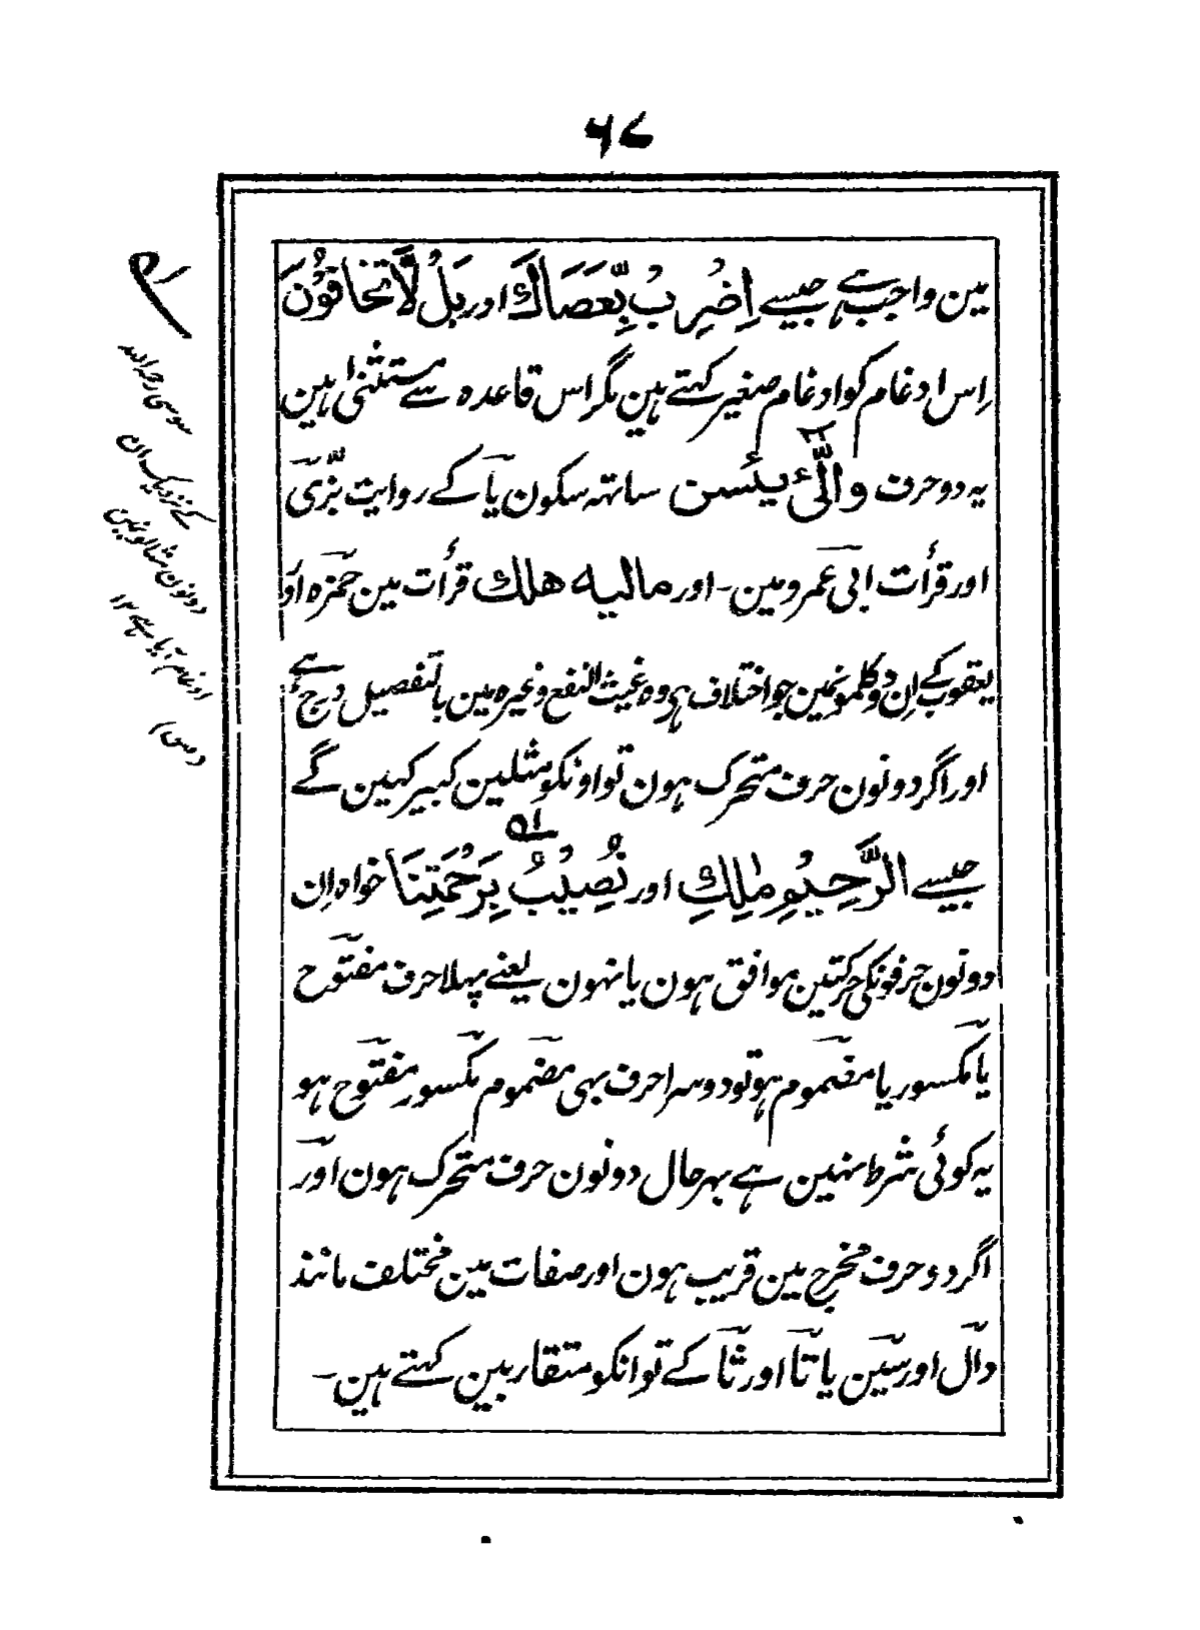 ۶۷
مین واجب ہے جیسے اِضْرِبْ بِّعَصَاكَ اور بَلْ لَّا تَخَافُوْنَ
اِس ادغام کو ادغام صغیر کہتے ہین مگر اس قاعدہ سے مستثنیٰ ہین
یہ دو حرف وَالّٰیْٔ یَئِسْنَ ساتہہ سکون یآ کے روایت بزّی
اور قرأت ابی عمرو مین ۔ اور مالیہ هلك قرأت مین حمزہ اور
یعقوب کے اِن دو کلمونمین جو اختلاف ہی وہ غیث النفع وغیرہ مین بالتفصیل درج ہے
اور اگر دونون حرف متحرک ہون تو اونکو مثلین کبیر کہین گے
جیسے الرَّحِیْمِ مٰلِكِ اور نُصِیْبُ بِرَحْمَتِنَا خواہ اِن
دونون حرفونکی حرکتین موافق ہون یا نہون یعنے پہلا حرف مفتوح
یا مکسور یا مضموم ہو تو دوسرا حرف بہی مضموم مکسور مفتوح ہو
یہ کوئی شرط نہین ہے بہرحال دونون حرف متحرک ہون اور
اگر دو حرف مخرج مین قریب ہون اور صفات مین مختلف مانند
دال اور سین یا تا اور ثا کے تو انکو متقاربین کہتے ہین ۔
سوسی رحمہ اللہ
کے نزدیک ان
دونون مثالونمین
ادغام آیا ہے ۱۲